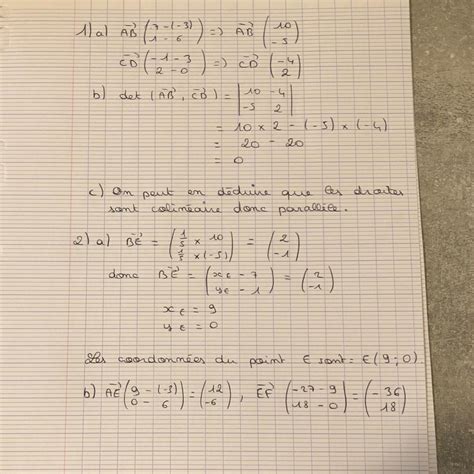 1) a) AB⃗ (7 - (-3) ; 1 - 6) => AB⃗ (10 ; -5)
CD⃗ (-1 - 3 ; 2 - 0) => CD⃗ (-4 ; 2)
b) det (AB⃗, CD⃗) = |10 -4 ; -5 2|
= 10 × 2 - (-5) × (-4)
= 20 - 20
= 0
c) On peut en déduire que les droites
sont colinéaire donc parallèle.
2) a) BE⃗ = (1/5 × 10 ; 1/5 × (-5)) = (2 ; -1)
donc BE⃗ = (xE - 7 ; yE - 1) = (2 ; -1)
xE = 9
yE = 0
Les coordonnées du point E sont = E (9 ; 0).
b) AE⃗ (9 - (-3) ; 0 - 6) = (12 ; -6) , EF⃗ (-27 - 9 ; 18 - 0) = (-36 ; 18)